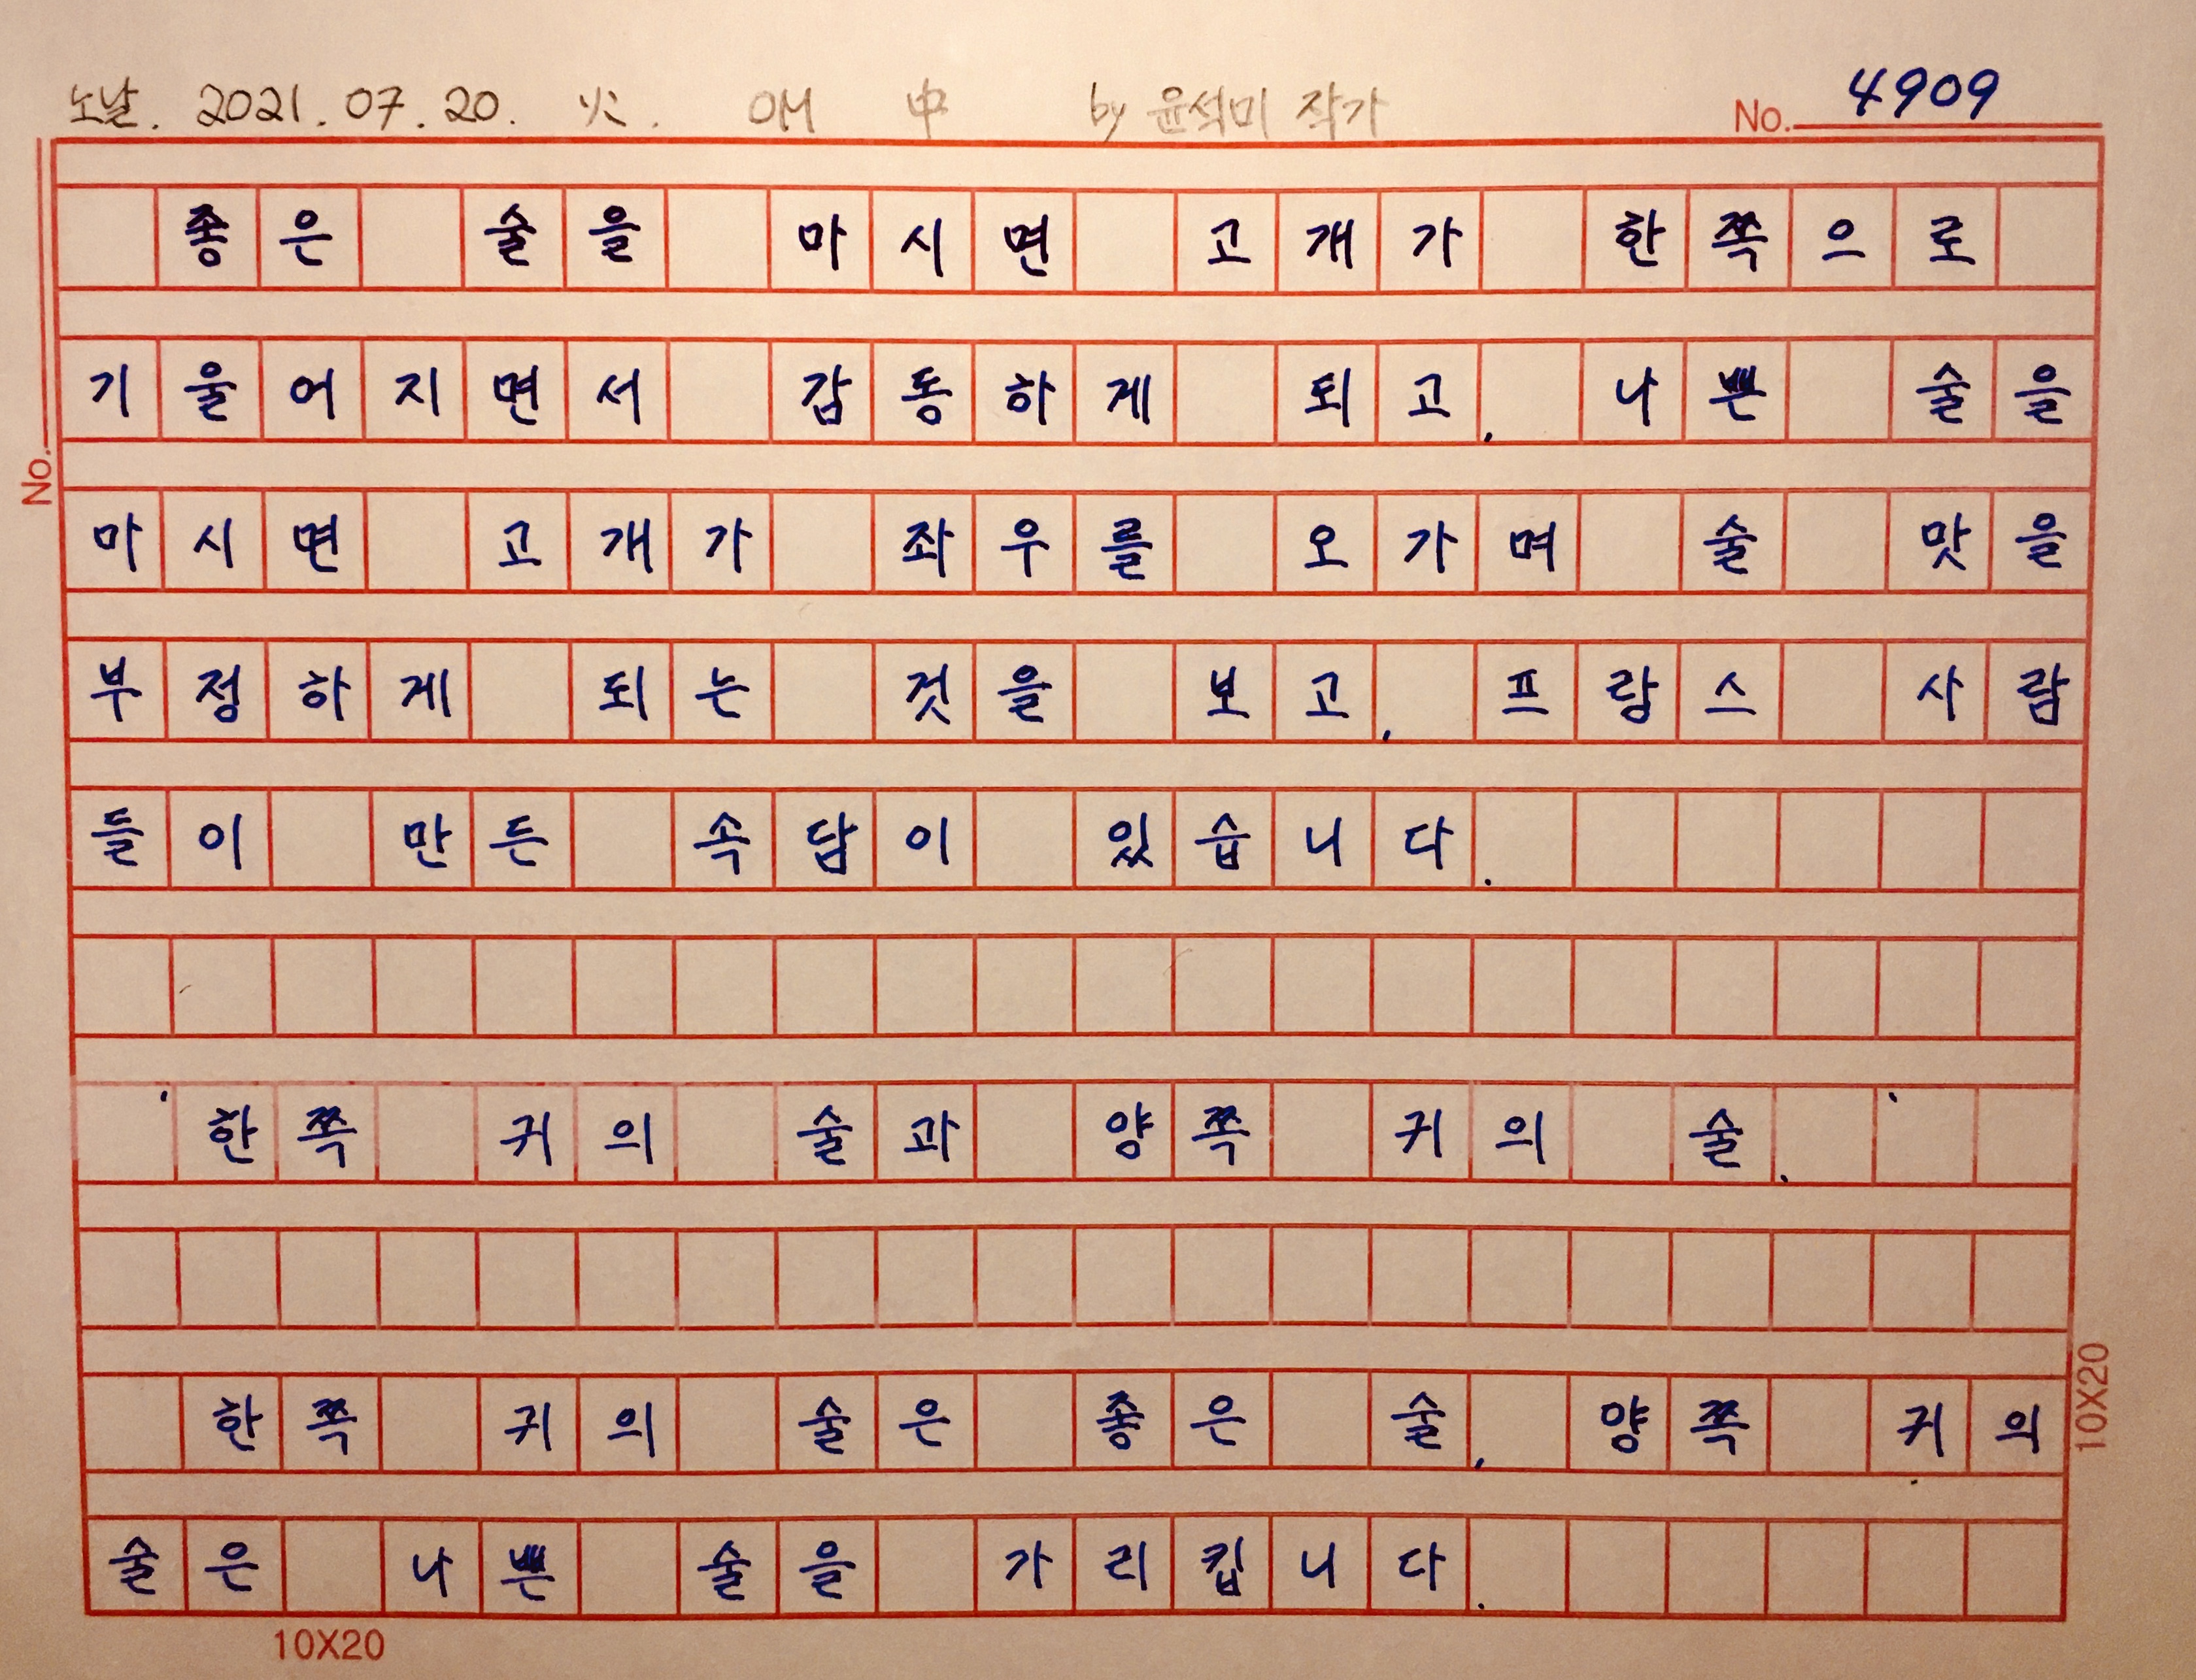 노날. 2021. 07. 20. 火. OM 中 by 윤석미 작가
No. 4909
좋은 술을 마시면 고개가 한쪽으로
기울어지면서 감동하게 되고, 나쁜 술을
마시면 고개가 좌우를 오가며 술 맛을
부정하게 되는 것을 보고, 프랑스 사람
들이 만든 속담이 있습니다.
'한쪽 귀의 술과 양쪽 귀의 술.'
한쪽 귀의 술은 좋은 술, 양쪽 귀의
술은 나쁜 술을 가리킵니다.
No.
10X20
10X20